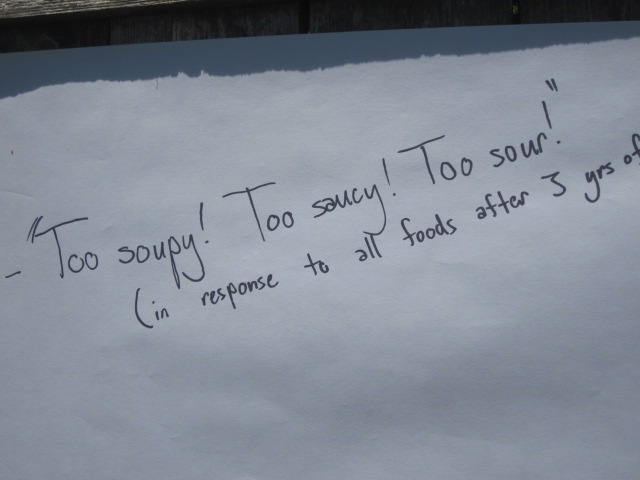 - "Too soupy! Too saucy! Too sour!"
(in response to all foods after 3 yrs of